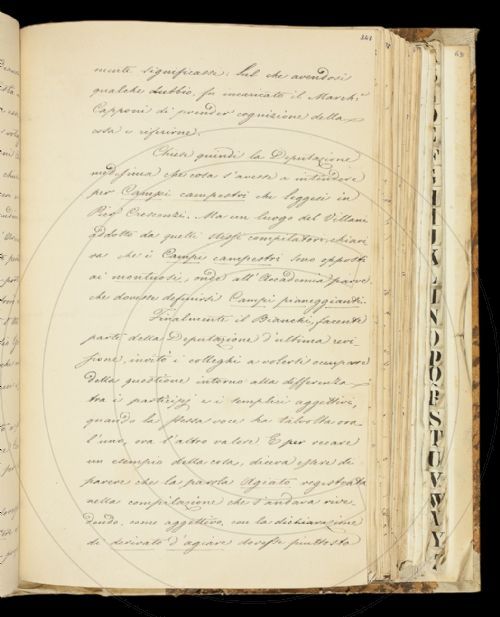 341
mente significasse. Sul che avendosi
qualche dubbio, fu incaricato il March.e
Capponi di prender cognizione della
cosa e riferirne.
Chiese quindi la Deputazione
medesima che cosa s'avesse a intendere
per Campi campestri che leggesi in
Pier Crescenzi. Ma un luogo del Villani
addotto da quelli stessi compilatori chiari-
va che i Campi campestri sono opposti
ai montuosi, onde all'Accademia parve
che dovesse definirsi Campi pianeggianti.
Finalmente il Bianchi, facente
parte della Deputazione d'ultima revi-
sione, invitò i colleghi a volersi occupare
della questione intorno alla differenza
tra i participj e i semplici aggettivi,
quando la stessa voce ha talvolta ora
l'uno, ora l'altro valore. E per recare
un esempio della cosa, diceva essere di
parere che la parola Agiato registrata
nella compilazione che s'andava rive-
dendo, come aggettivo, con la dichiarazione
di derivato d'agiare dovesse piuttosto